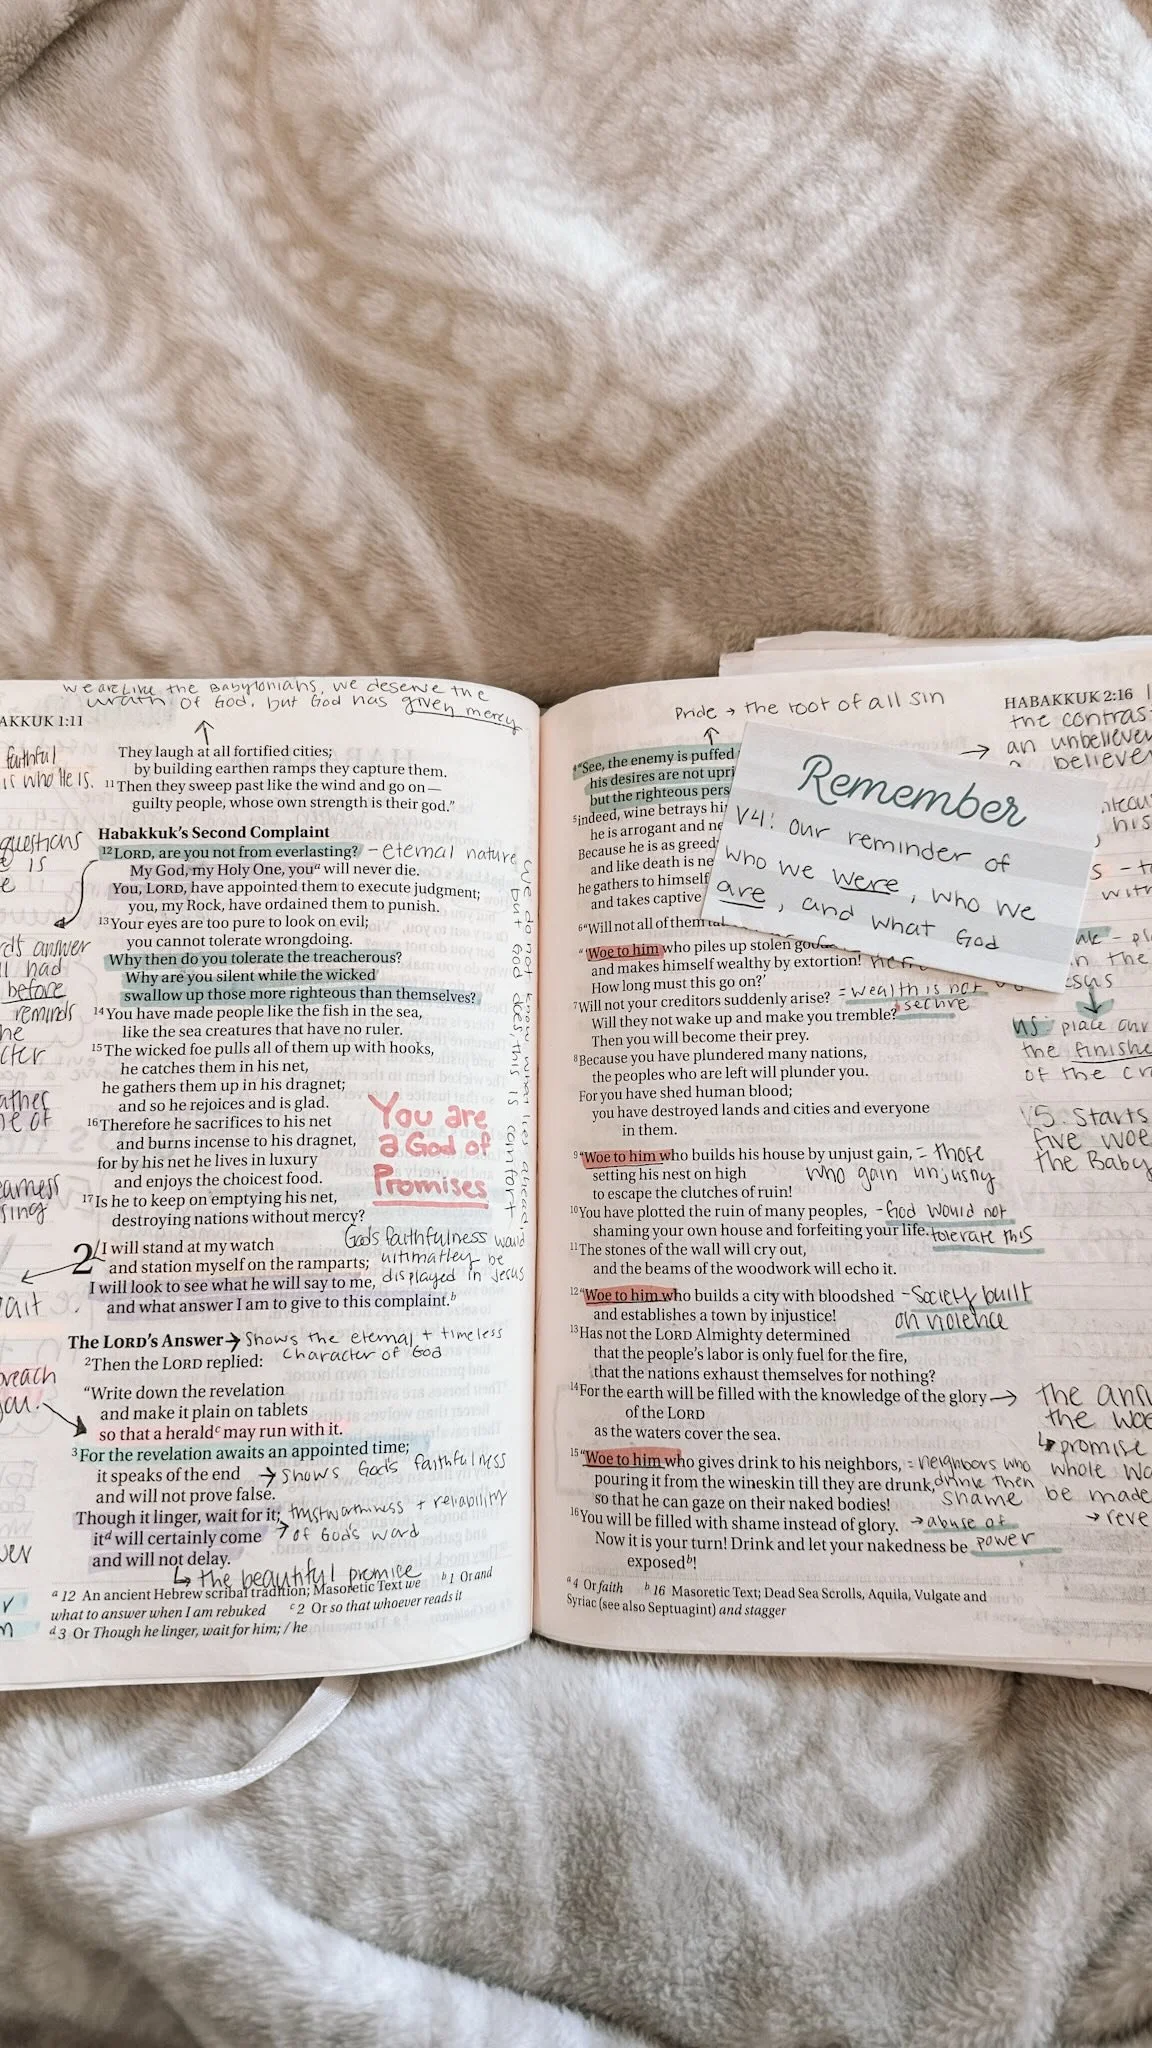 we are like the Babylonians, we deserve the
wrath of God, but God has given mercy
AKKUK 1:11
faithful
is who He is.
They laugh at all fortified cities;
by building earthen ramps they capture them.
11 Then they sweep past like the wind and go on—
guilty people, whose own strength is their god.”
questions
is
Habakkuk’s Second Complaint
12 LORD, are you not from everlasting? - eternal nature
My God, my Holy One, you a will never die.
You, LORD, have appointed them to execute judgment;
you, my Rock, have ordained them to punish.
13 Your eyes are too pure to look on evil;
you cannot tolerate wrongdoing.
Why then do you tolerate the treacherous?
Why are you silent while the wicked
swallow up those more righteous than themselves?
answer
had
before
reminds
14 You have made people like the fish in the sea,
like the sea creatures that have no ruler.
15 The wicked foe pulls all of them up with hooks,
he catches them in his net,
he gathers them up in his dragnet;
and so he rejoices and is glad.
16 Therefore he sacrifices to his net
and burns incense to his dragnet,
for by his net he lives in luxury
and enjoys the choicest food.
17 Is he to keep on emptying his net,
destroying nations without mercy?
You are
a God of
Promises
we do not know what lies ahead,
but God does, this is comfort
2 I will stand at my watch
and station myself on the ramparts;
I will look to see what he will say to me,
and what answer I am to give to this complaint. b
God's faithfulness would
ultimatley be
displayed in Jesus
The LORD’s Answer → shows the eternal + timeless
character of God
2 Then the LORD replied:
“Write down the revelation
and make it plain on tablets
so that a herald c may run with it.
3 For the revelation awaits an appointed time;
it speaks of the end → shows God's faithfulness
and will not prove false.
Though it linger, wait for it; trustworthiness + reliability
it d will certainly come → of God's word
and will not delay.
↳ the beautiful promise
a 12 An ancient Hebrew scribal tradition; Masoretic Text we b 1 Or and
what to answer when I am rebuked c 2 Or so that whoever reads it
d 3 Or Though he linger, wait for him; / he
Pride → the root of all sin
HABAKKUK 2:16
the contrast
→ an unbeliever
believer
4 “See, the enemy is puffed
his desires are not upri
but the righteous pers
5 indeed, wine betrays hi
he is arrogant and ne
Because he is as greed
and like death is ne
he gathers to himself
and takes captive
Remember
V4! our reminder of
who we were, who we
are, and what God
6 “Will not all of them ta
“‘Woe to him who piles up stolen goods
and makes himself wealthy by extortion!
How long must this go on?’
7 Will not your creditors suddenly arise? = wealth is not
secure
Will they not wake up and make you tremble?
Then you will become their prey.
8 Because you have plundered many nations,
the peoples who are left will plunder you.
For you have shed human blood;
you have destroyed lands and cities and everyone
in them.
us: place our
the finishe
of the cr
V5. starts
five woe
the Baby
9 “Woe to him who builds his house by unjust gain, = those
setting his nest on high who gain unjusny
to escape the clutches of ruin!
10 You have plotted the ruin of many peoples, - God would not
shaming your own house and forfeiting your life. tolerate this
11 The stones of the wall will cry out,
and the beams of the woodwork will echo it.
12 “Woe to him who builds a city with bloodshed - society built
and establishes a town by injustice! on violence
13 Has not the LORD Almighty determined
that the people’s labor is only fuel for the fire,
that the nations exhaust themselves for nothing?
14 For the earth will be filled with the knowledge of the glory →
of the LORD
as the waters cover the sea.
the ans
the woe
↳ promise
whole wo
be made
→ reve
15 “Woe to him who gives drink to his neighbors, = neighbors who
pouring it from the wineskin till they are drunk, drink then
so that he can gaze on their naked bodies! shame
16 You will be filled with shame instead of glory. → abuse of
Now it is your turn! Drink and let your nakedness be power
exposed b!
a 4 Or faith b 16 Masoretic Text; Dead Sea Scrolls, Aquila, Vulgate and
Syriac (see also Septuagint) and stagger